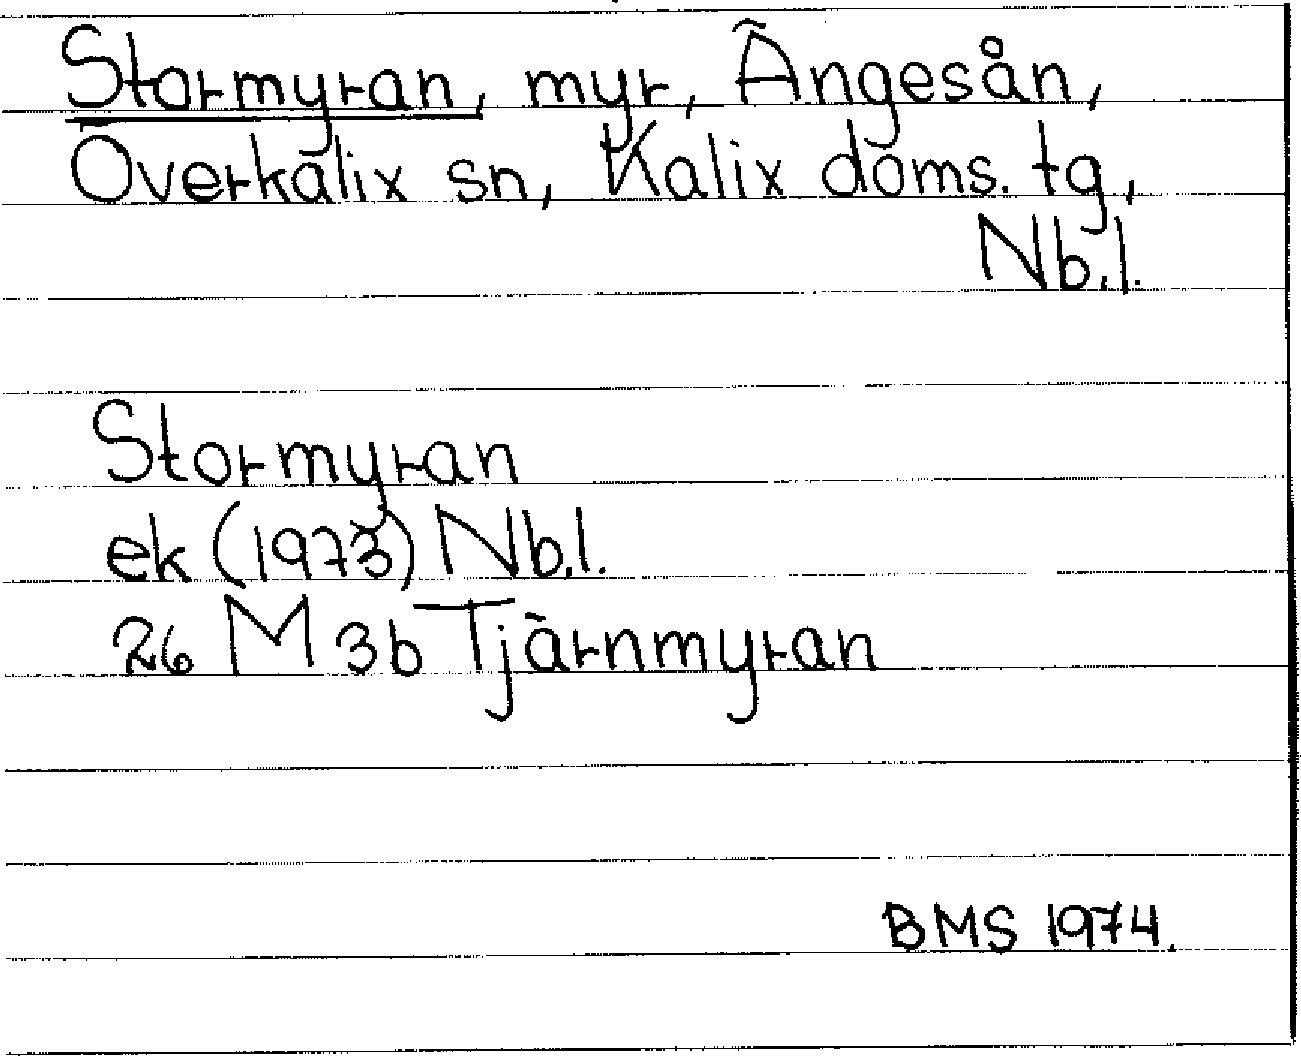 Stormyran, myr, Ängesån,
Överkalix sn, Kalix doms. tg,
Nb.l.
Stormyran
ek (1973) Nb.l.
26 M 3b Tjärnmyran
BMS 1974.